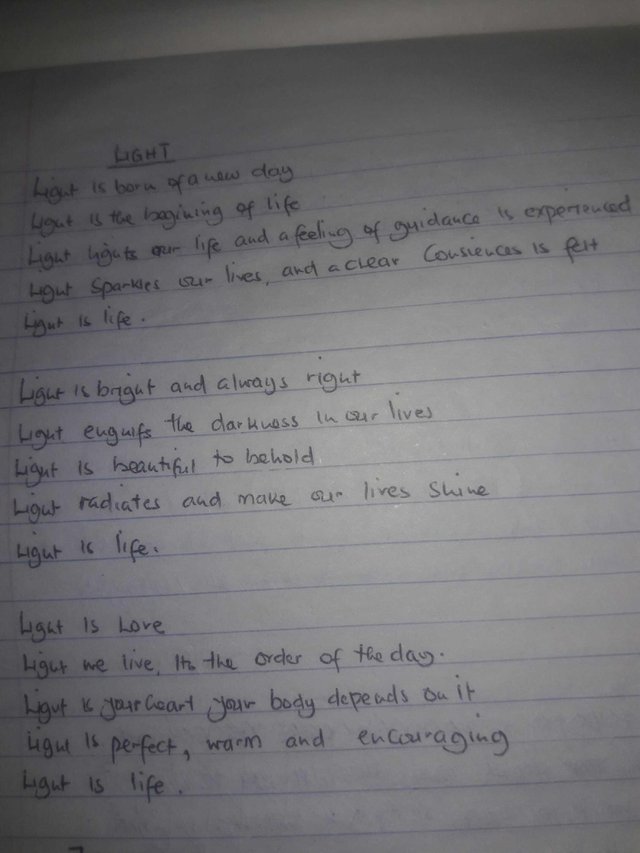 LIGHT
Light is born of a new day
Light is the begining of life
Light lights our life and a feeling of guidance is experienced
Light sparkles our lives, and a clear Consiences is felt
Light is life.
Light is bright and always right
Light engulfs the darkness in our lives
Light is beautiful to behold
Light radiates and make our lives shine
Light is life.
Light is Love
Light we live, its the order of the day.
Light is your heart your body depends on it
Light is perfect, warm and encouraging
Light is life.